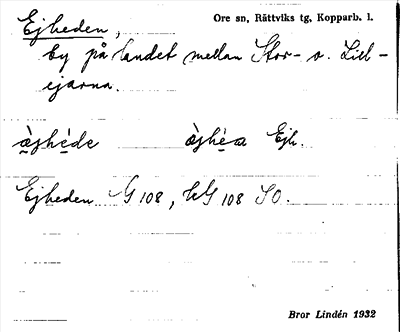 Ejheden, Ore sn, Rättviks tg, Kopparb. l.
by på landet mellan Stor- o. Lill-
ejarna.
Ejh.
Ejheden G 108, hG 108 SO.
Bror Lindén 1932